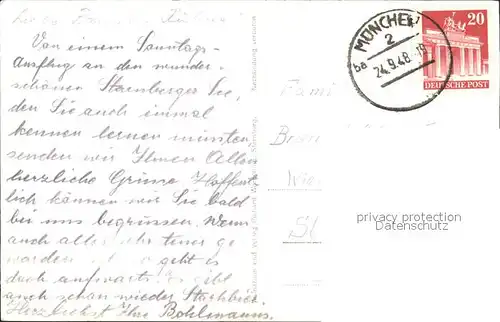 Von einem Sonntags-
Ausflug an den wunder-
schönen Starnberger See,
den Sie auch einmal
kennen lernen müssten
senden wir Ihnen Allen
herzliche Grüsse Hoffent-
lich können wir Sie bald
bei uns begrüssen. Wenn
auch alles sehr teuer ge
worden ist so geht es
doch aufwärts. Es gibt
auch schon wieder Starkbier.
Herzlichst Ihre Bohlmanns.
MÜNCHEN
2
ba
24.9.48.-19
20
DEUTSCHE POST
Fami
Wie
privacy protection
Datenschutz